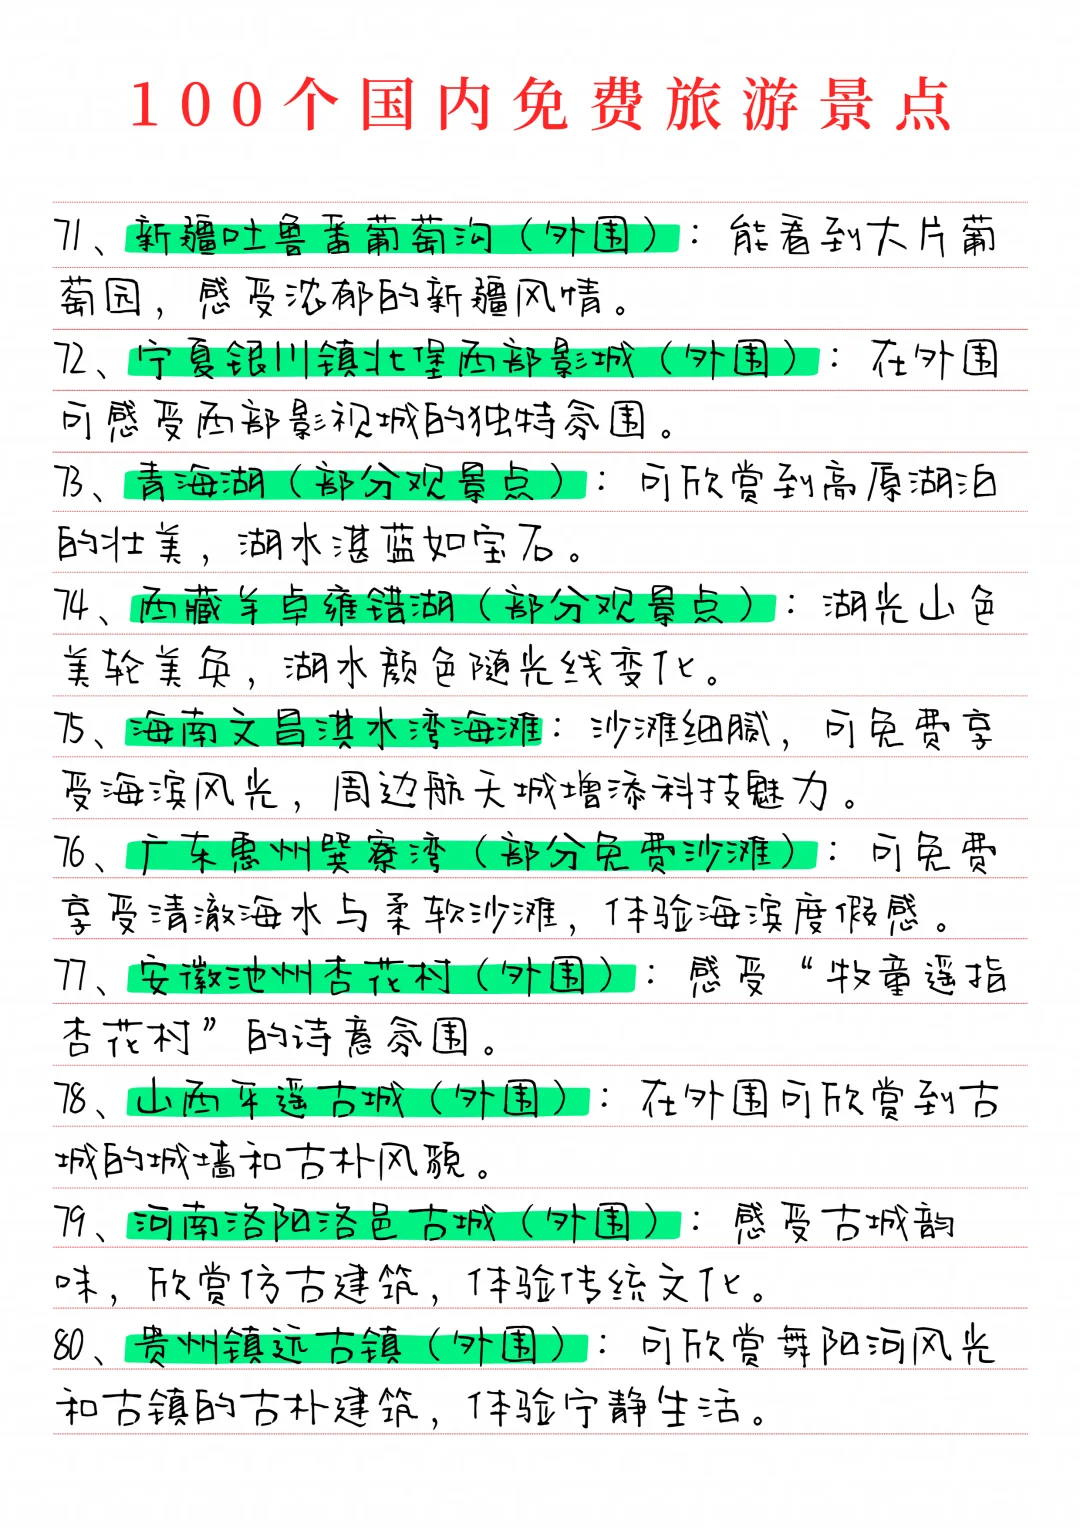 100个国内免费旅游景点
71、新疆吐鲁番葡萄沟（外围）：能看到大片葡
萄园，感受浓郁的新疆风情。
72、宁夏银川镇北堡西部影城（外围）：在外围
可感受西部影视城的独特氛围。
73、青海湖（部分观景点）：可欣赏到高原湖泊
的壮美，湖水湛蓝如宝石。
74、西藏羊卓雍错湖（部分观景点）：湖光山色
美轮美奂，湖水颜色随光线变化。
75、海南文昌淇水湾海滩：沙滩细腻，可免费享
受海滨风光，周边航天城增添科技魅力。
76、广东惠州巽寮湾（部分免费沙滩）：可免费
享受清澈海水与柔软沙滩，体验海滨度假感。
77、安徽池州杏花村（外围）：感受“牧童遥指
杏花村”的诗意氛围。
78、山西平遥古城（外围）：在外围可欣赏到古
城的城墙和古朴风貌。
79、河南洛阳洛邑古城（外围）：感受古城韵
味，欣赏仿古建筑，体验传统文化。
80、贵州镇远古镇（外围）：可欣赏舞阳河风光
和古镇的古朴建筑，体验宁静生活。